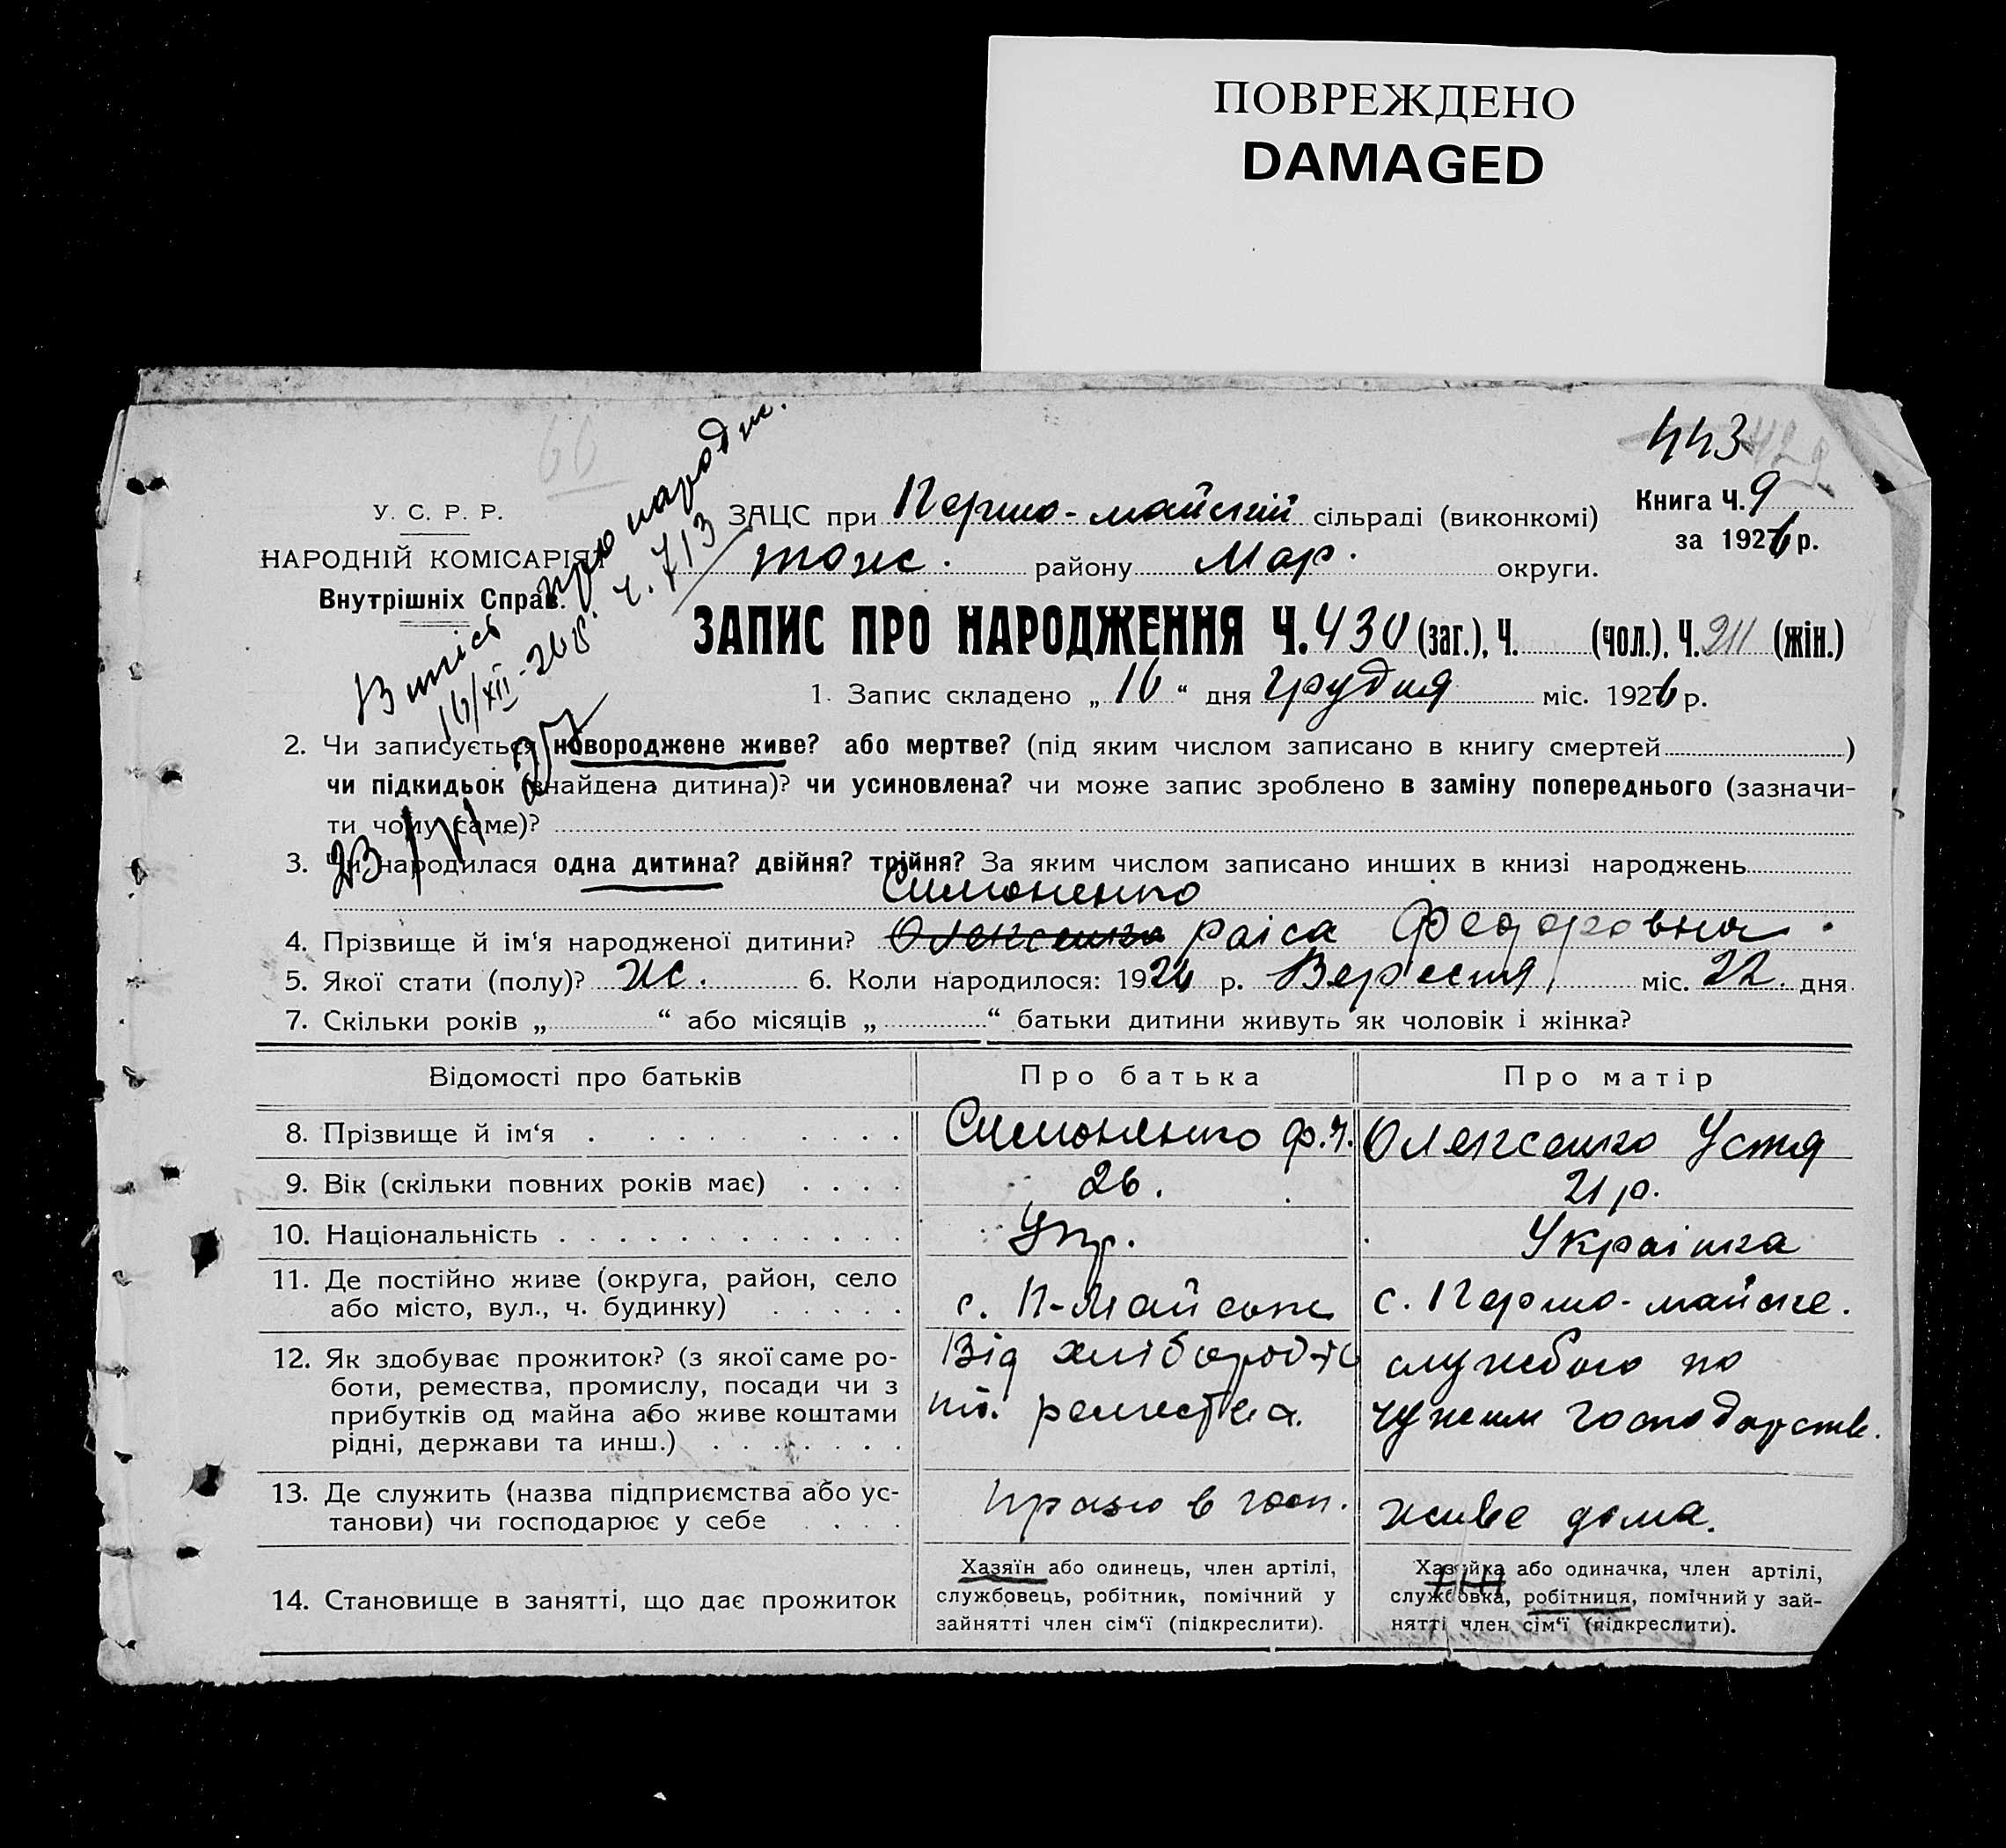 ПОВРЕЖДЕНО
DAMAGED
443
У. С. Р. Р.
НАРОДНІЙ КОМІСАРІЯТ
Внутрішніх Справ.
Випісь про народж.
16/XII-26 р. ч. 713
ЗАЦС при Першо-майскій сільраді (виконкомі)
Книга Ч. 9
за 1926 р.
тож. району Мар. округи.
ЗАПИС ПРО НАРОДЖЕННЯ Ч. 430 (заг.), Ч. (чол.), Ч. 211 (жін.)
1. Запис складено „ 16 “ дня Грудня міс. 1926 р.
2. Чи записується новороджене живе? або мертве? (під яким числом записано в книгу смертей )
чи підкидьок (знайдена дитина)? чи усиновлена? чи може запис зроблено в заміну попереднього (зазначи-
ти чому саме)?
3. Чи народилася одна дитина? двійня? трійня? За яким числом записано инших в книзі народжень
Симоненко
4. Прізвище й ім‘я народженої дитини? Олексенко раіса Федоровна.
5. Якої стати (полу)? ж. 6. Коли народилося: 1926 р. Вересня міс. 22. дня
7. Скільки років „ “ або місяців „ “ батьки дитини живуть як чоловік і жінка?
Відомості про батьків Про батька Про матір
8. Прізвище й ім‘я Симоненко Ф. Олексенко Устя
9. Вік (скільки повних років має) 26. 21 р.
10. Національність Укр. Украінка
11. Де постійно живе (округа, район, село
або місто, вул., ч. будинку) с. П-Майське с. Першо-майське.
12. Як здобуває прожиток? (з якої саме ро-
боти, ремества, промислу, посади чи з
прибутків од майна або живе коштами
рідні, держави та инш.)
Від
ремества.
службою по
чужим господарств.
13. Де служить (назва підприємства або ус-
танови) чи господарює у себе
в госп.
живе дома.
14. Становище в занятті, що дає прожиток
Хазяїн або одинець, член артілі,
службовець, робітник, помічний у
зайнятті член сім‘ї (підкреслити).
Хазяйка або одиначка, член артілі,
службовка, робітниця, помічний у зай-
нятті член сім‘ї (підкреслити).